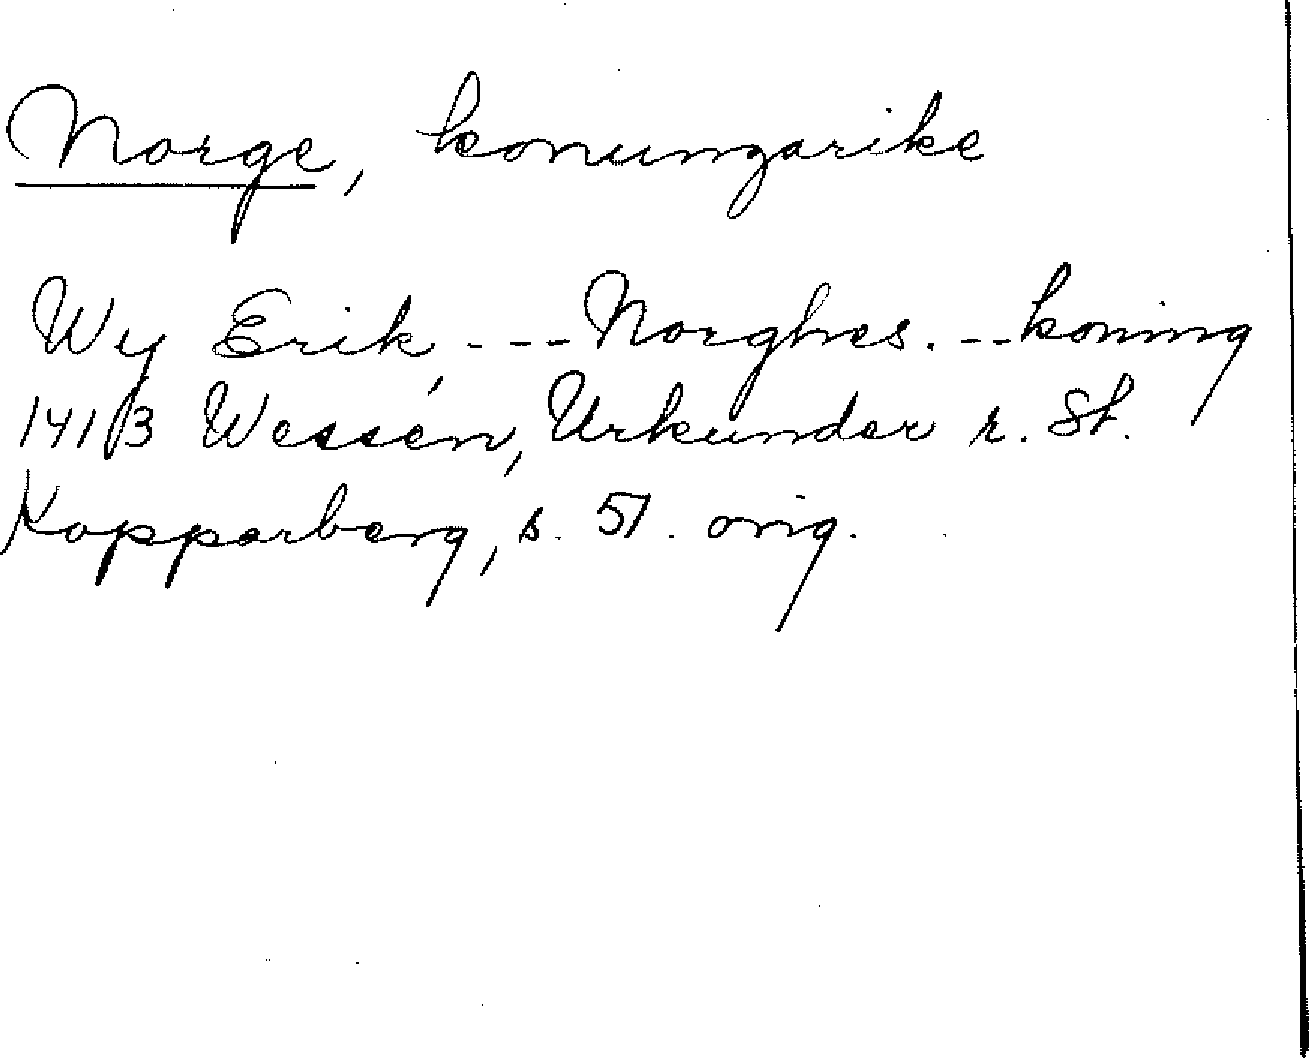 Norge, konungarike
Wy Erik, --- Norghes. -- koning
1413 Wessén, Urkunder r. St.
Kopparberg, s. 51. orig.